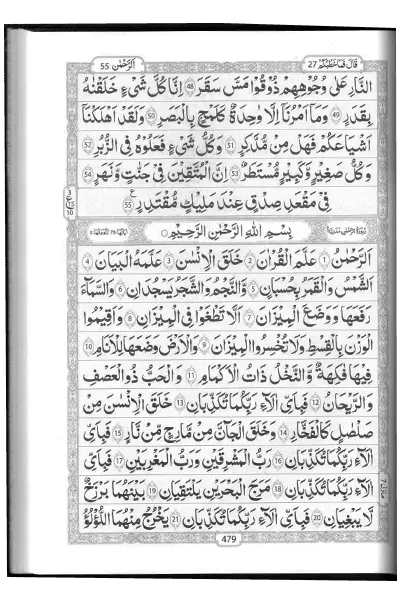 اَلرَّحْمٰن 55
قَالَ فَمَا خَطْبُكُمْ 27
النَّارِ عَلٰى وُجُوْهِهِمْ ذُوْقُوْا مَسَّ سَقَرَ 48 اِنَّا كُلَّ شَىْءٍ خَلَقْنٰهُ
بِقَدَرٍ 49 وَمَاۤ اَمْرُنَاۤ اِلَّا وَاحِدَةٌ كَلَمْحٍۭ بِالْبَصَرِ 50 وَلَقَدْ اَهْلَكْنَاۤ
اَشْيَاعَكُمْ فَهَلْ مِنْ مُّدَّكِرٍ 51 وَكُلُّ شَىْءٍ فَعَلُوْهُ فِى الزُّبُرِ 52
وَكُلُّ صَغِيْرٍ وَّكَبِيْرٍ مُّسْتَطَرٌ 53 اِنَّ الْمُتَّقِيْنَ فِىْ جَنّٰتٍ وَّنَهَرٍ 54
فِىْ مَقْعَدِ صِدْقٍ عِنْدَ مَلِيْكٍ مُّقْتَدِرٍ
بِسْمِ اللّٰهِ الرَّحْمٰنِ الرَّحِيْمِ
اَلرَّحْمٰنُ 1 عَلَّمَ الْقُرْاٰنَ 2 خَلَقَ الْاِنْسَانَ 3 عَلَّمَهُ الْبَيَانَ 4
اَلشَّمْسُ وَالْقَمَرُ بِحُسْبَانٍ 5 وَّالنَّجْمُ وَالشَّجَرُ يَسْجُدَانِ 6 وَالسَّمَآءَ
رَفَعَهَا وَوَضَعَ الْمِيْزَانَ 7 اَلَّا تَطْغَوْا فِى الْمِيْزَانِ 8 وَاَقِيْمُوا
الْوَزْنَ بِالْقِسْطِ وَلَا تُخْسِرُوا الْمِيْزَانَ 9 وَالْاَرْضَ وَضَعَهَا لِلْاَنَامِ 10
فِيْهَا فَاكِهَةٌ وَّالنَّخْلُ ذَاتُ الْاَكْمَامِ 11 وَالْحَبُّ ذُو الْعَصْفِ
وَالرَّيْحَانُ 12 فَبِاَىِّ اٰلَآءِ رَبِّكُمَا تُكَذِّبٰنِ 13 خَلَقَ الْاِنْسَانَ مِنْ
صَلْصَالٍ كَالْفَخَّارِ 14 وَخَلَقَ الْجَآنَّ مِنْ مَّارِجٍ مِّنْ نَّارٍ 15 فَبِاَىِّ
اٰلَآءِ رَبِّكُمَا تُكَذِّبٰنِ 16 رَبُّ الْمَشْرِقَيْنِ وَرَبُّ الْمَغْرِبَيْنِ 17 فَبِاَىِّ
اٰلَآءِ رَبِّكُمَا تُكَذِّبٰنِ 18 مَرَجَ الْبَحْرَيْنِ يَلْتَقِيٰنِ 19 بَيْنَهُمَا بَرْزَخٌ
لَّا يَبْغِيٰنِ 20 فَبِاَىِّ اٰلَآءِ رَبِّكُمَا تُكَذِّبٰنِ 21 يَخْرُجُ مِنْهُمَا اللُّؤْلُؤُ
479